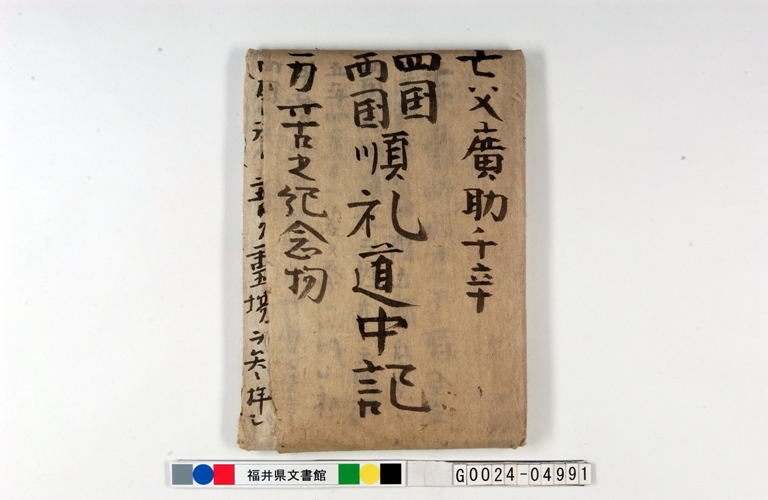 亡父廣助千辛
四国
西国順礼道中記
万苦之紀念物
福井県文書館
G0024-04991